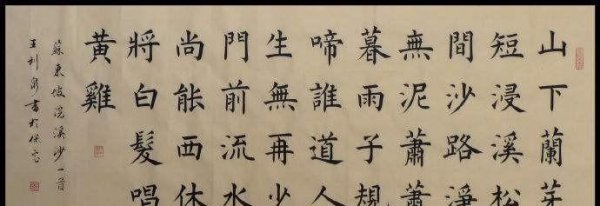 山下蘭芽
短浸溪松
間沙路淨
無泥蕭蕭
暮雨子規
啼誰道人
生無再少
門前流水
尚能西休
將白髮唱
黃雞
蘇東坡浣溪沙一首
王利書於保